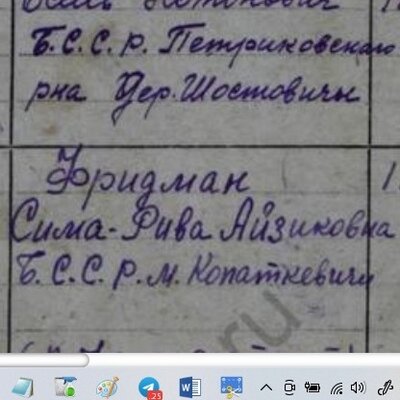 Б.С.С.Р. Петриковского
рна Дер. Шостовичи
Фридман
Сима-Рива Айзиковна
Б.С.С.Р. м. Копаткевичи
.ru
25